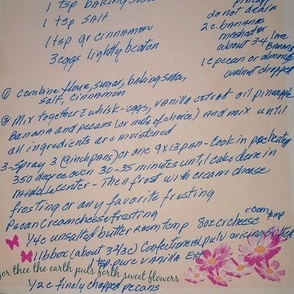 1 tsp baking soda
1 tsp salt
1 tsp gr cinnamon
3 eggs lightly beaten
do not drain
2 c. BANANAS
about 3-4
1 c pecan or
walnut chopped
① combine flour, sugar, baking soda,
salt, cinnamon
② Mix together & whisk - eggs, vanilla extract oil pineapple
Banana and pecans (or nuts of choice) And mix until
all ingredients are moistened
3 - Spray 3 (9 inch pans) or one 9x13 pan - Cook in preheated
350 degree oven 30-35 minutes until cake done in
middle center - Then frost with cream cheese
frosting or any favorite frosting
Pecan Cream cheese frosting
1/4 c unsalted butter Room temp 8oz cr cheese
1 lb box (about 3 2/3 c) Confectioners
1 tsp pure vanilla
for thee the earth puts forth sweet flowers
1/2 c finely chopped pecans